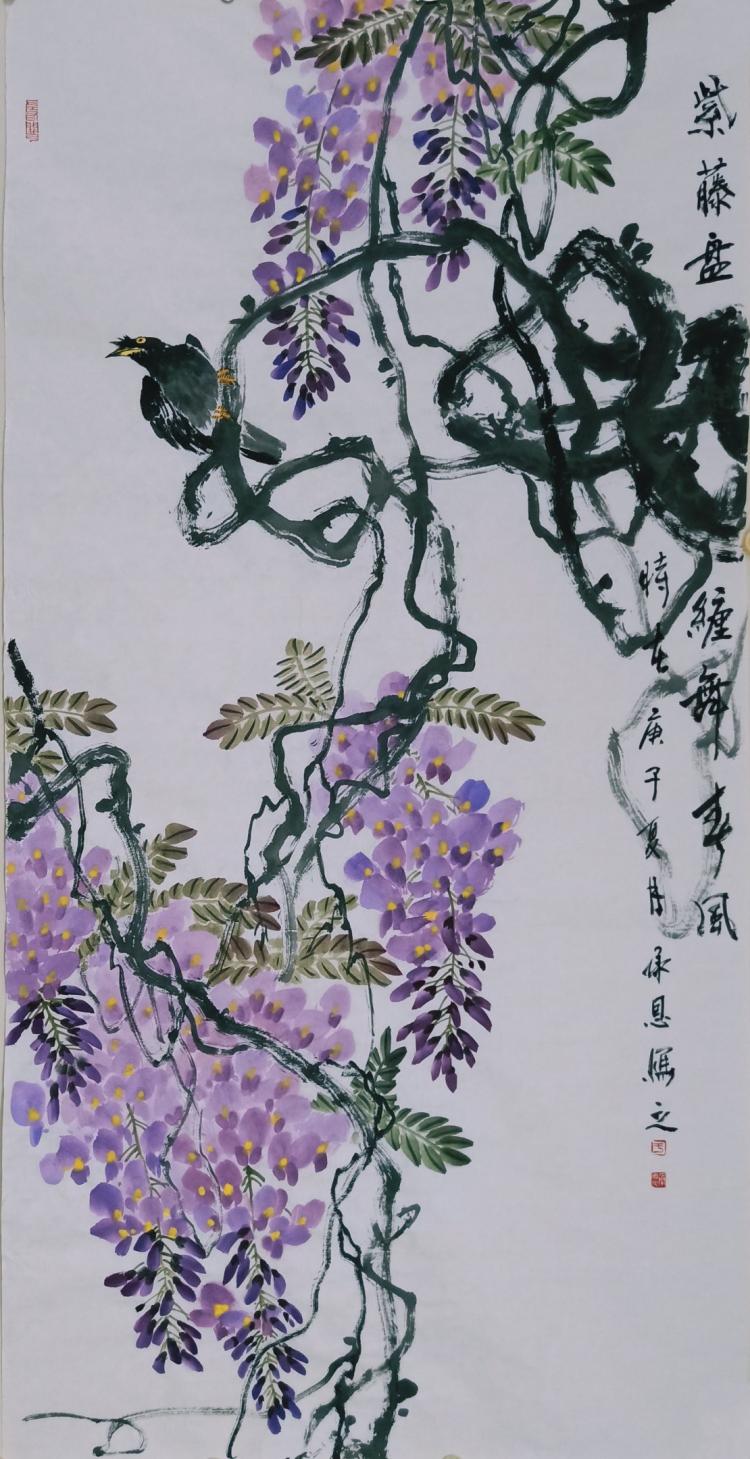 紫藤盘缠舞春风
时在庚子夏月承恩写之